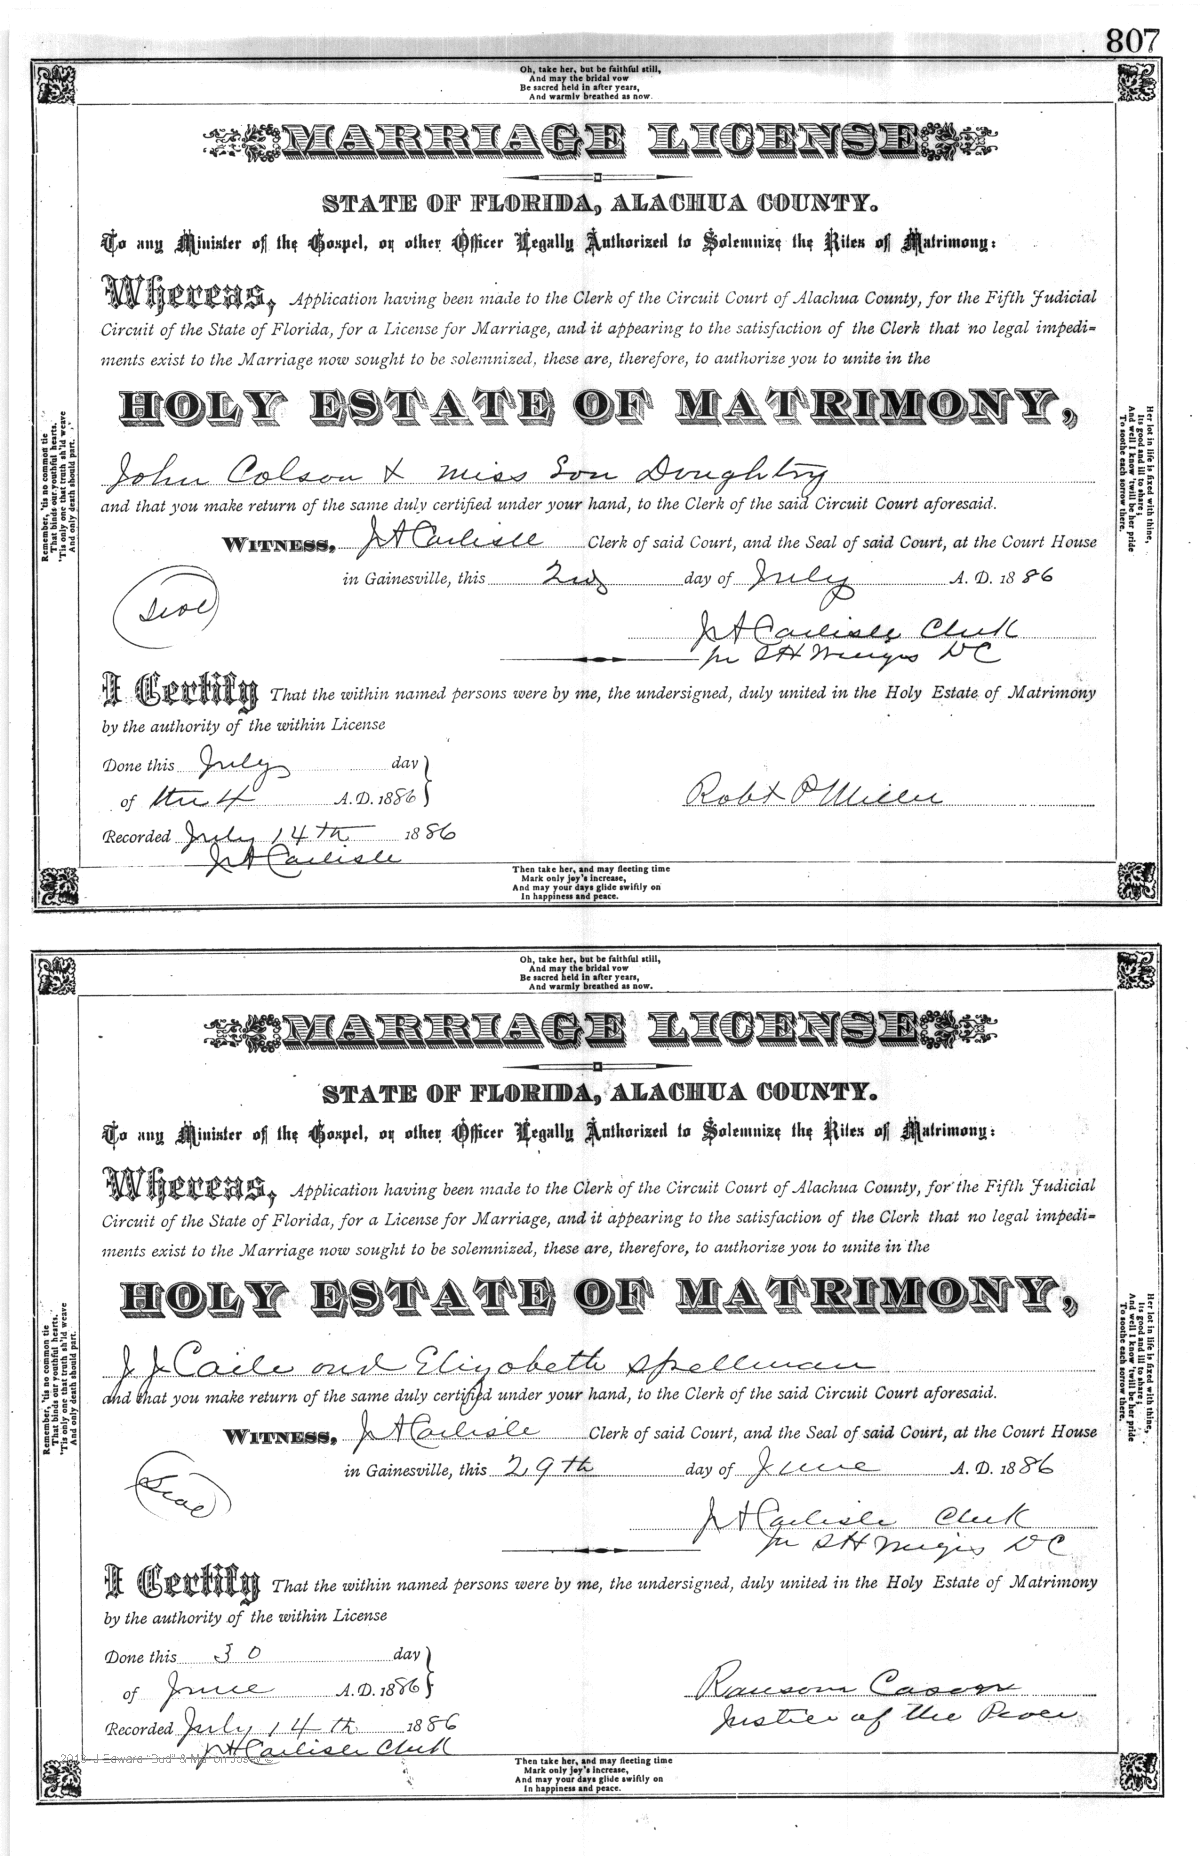 807
Oh, take her, but be faithful still,
And may the bridal vow
Be sacred held in after years,
And warmly breathed as now.
MARRIAGE LICENSE
STATE OF FLORIDA, ALACHUA COUNTY.
To any Minister of the Gospel, or other Officer Legally Authorized to Solemnize the Rites of Matrimony:
Whereas, Application having been made to the Clerk of the Circuit Court of Alachua County, for the Fifth Judicial
Circuit of the State of Florida, for a License for Marriage, and it appearing to the satisfaction of the Clerk that no legal impedi-
ments exist to the Marriage now sought to be solemnized, these are, therefore, to authorize you to unite in the
HOLY ESTATE OF MATRIMONY,
John Colson & Miss Doughtry
and that you make return of the same duly certified under your hand, to the Clerk of the said Circuit Court aforesaid.
WITNESS, J A Carlisle Clerk of said Court, and the Seal of said Court, at the Court House
in Gainesville, this 2nd day of July A. D. 1886
Seal
J A Carlisle Clerk
pr S H DC
I Certify That the within named persons were by me, the undersigned, duly united in the Holy Estate of Matrimony
by the authority of the within License
Done this July day
of the 4 A.D. 1886
Robt P Miller
Recorded July 14th 1886
J A Carlisle
Then take her, and may fleeting time
Mark only joy's increase,
And may your days glide swiftly on
In happiness and peace.
Remember, 'tis no common tie
That binds our youthful hearts,
'Tis only one that truth sh'ld weave
And only death should part.
Her lot in life is fixed with thine,
Its good and ill to share;
And well I know 'twill be her pride
To soothe each sorrow there.
Oh, take her, but be faithful still,
And may the bridal vow
Be sacred held in after years,
And warmly breathed as now.
MARRIAGE LICENSE
STATE OF FLORIDA, ALACHUA COUNTY.
To any Minister of the Gospel, or other Officer Legally Authorized to Solemnize the Rites of Matrimony:
Whereas, Application having been made to the Clerk of the Circuit Court of Alachua County, for the Fifth Judicial
Circuit of the State of Florida, for a License for Marriage, and it appearing to the satisfaction of the Clerk that no legal impedi-
ments exist to the Marriage now sought to be solemnized, these are, therefore, to authorize you to unite in the
HOLY ESTATE OF MATRIMONY,
J J and Elizabeth Spellman
and that you make return of the same duly certified under your hand, to the Clerk of the said Circuit Court aforesaid.
WITNESS, J A Carlisle Clerk of said Court, and the Seal of said Court, at the Court House
in Gainesville, this 29th day of June A. D. 1886
Seal
J A Carlisle Clerk
pr S H DC
I Certify That the within named persons were by me, the undersigned, duly united in the Holy Estate of Matrimony
by the authority of the within License
Done this 30 day
of June A.D. 1886
Ransom Cason
Justice of the Peace
Recorded July 14th 1886
J A Carlisle Clerk
Then take her, and may fleeting time
Mark only joy's increase,
And may your days glide swiftly on
In happiness and peace.
Remember, 'tis no common tie
That binds our youthful hearts,
'Tis only one that truth sh'ld weave
And only death should part.
Her lot in life is fixed with thine,
Its good and ill to share;
And well I know 'twill be her pride
To soothe each sorrow there.